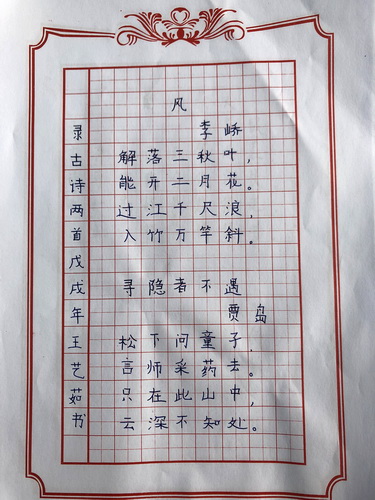 风
李峤
解落三秋叶，
能开二月花。
过江千尺浪，
入竹万竿斜。
寻隐者不遇
贾岛
松下问童子，
言师采药去。
只在此山中，
云深不知处。
录古诗两首戊戌年王艺茹书